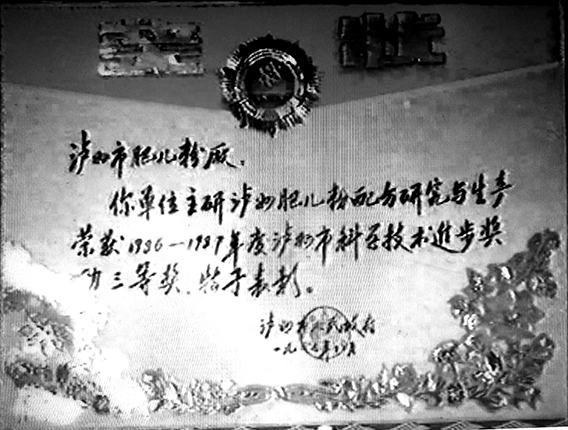 泸州市肥儿粉厂：
你单位主研泸州肥儿粉配方研究与生产
荣获1986—1987年度泸州市科学技术进步奖
三等奖，特予表彰。
泸州市人民政府
一九八 年 月